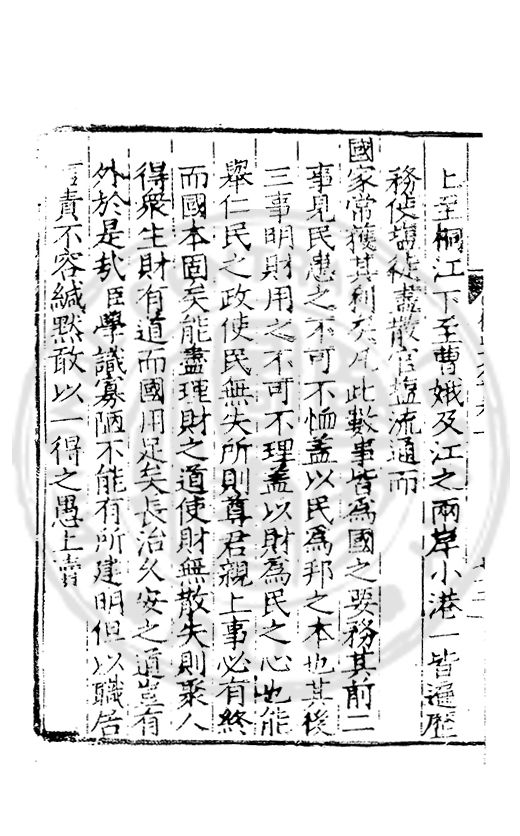 上至桐江下至曹娥及江之兩岸小港一皆遍歷
務使塩徒盡散官塩流通而
國家常獲其利矣凡此數事皆為國之要務其前二
事見民患之不可不恤盖以民為邦之本也其後
三事明財用之不可不理盖以財為民之心也能
舉仁民之政使民無失所則尊君親上事必有終
而國本固矣能盡理財之道使財無散失則聚人
得衆生財有道而國用足矣長治久安之道豈有
外於是哉臣學識寡陋不能有所建明但以職居
言責不容緘黙敢以一得之愚上瀆